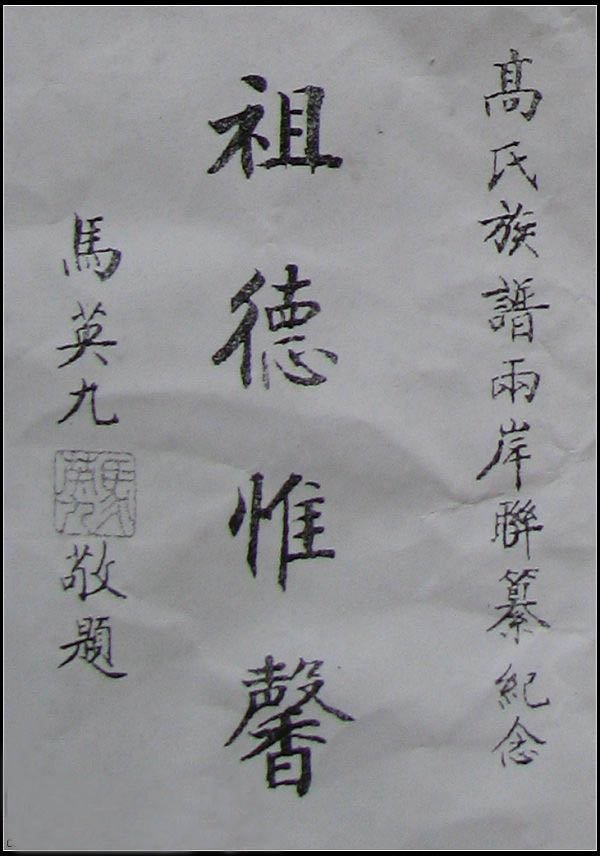 髙氏族譜兩岸聯纂紀念
祖德惟馨
馬英九
馬英九
敬題